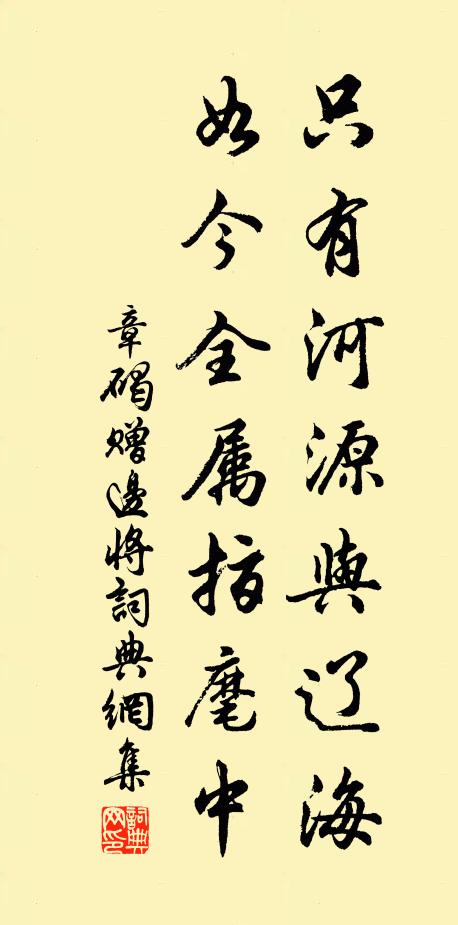 只有河源與辽海
如今全属指麾中
章碣贈邊將詞典網集
詞典網印